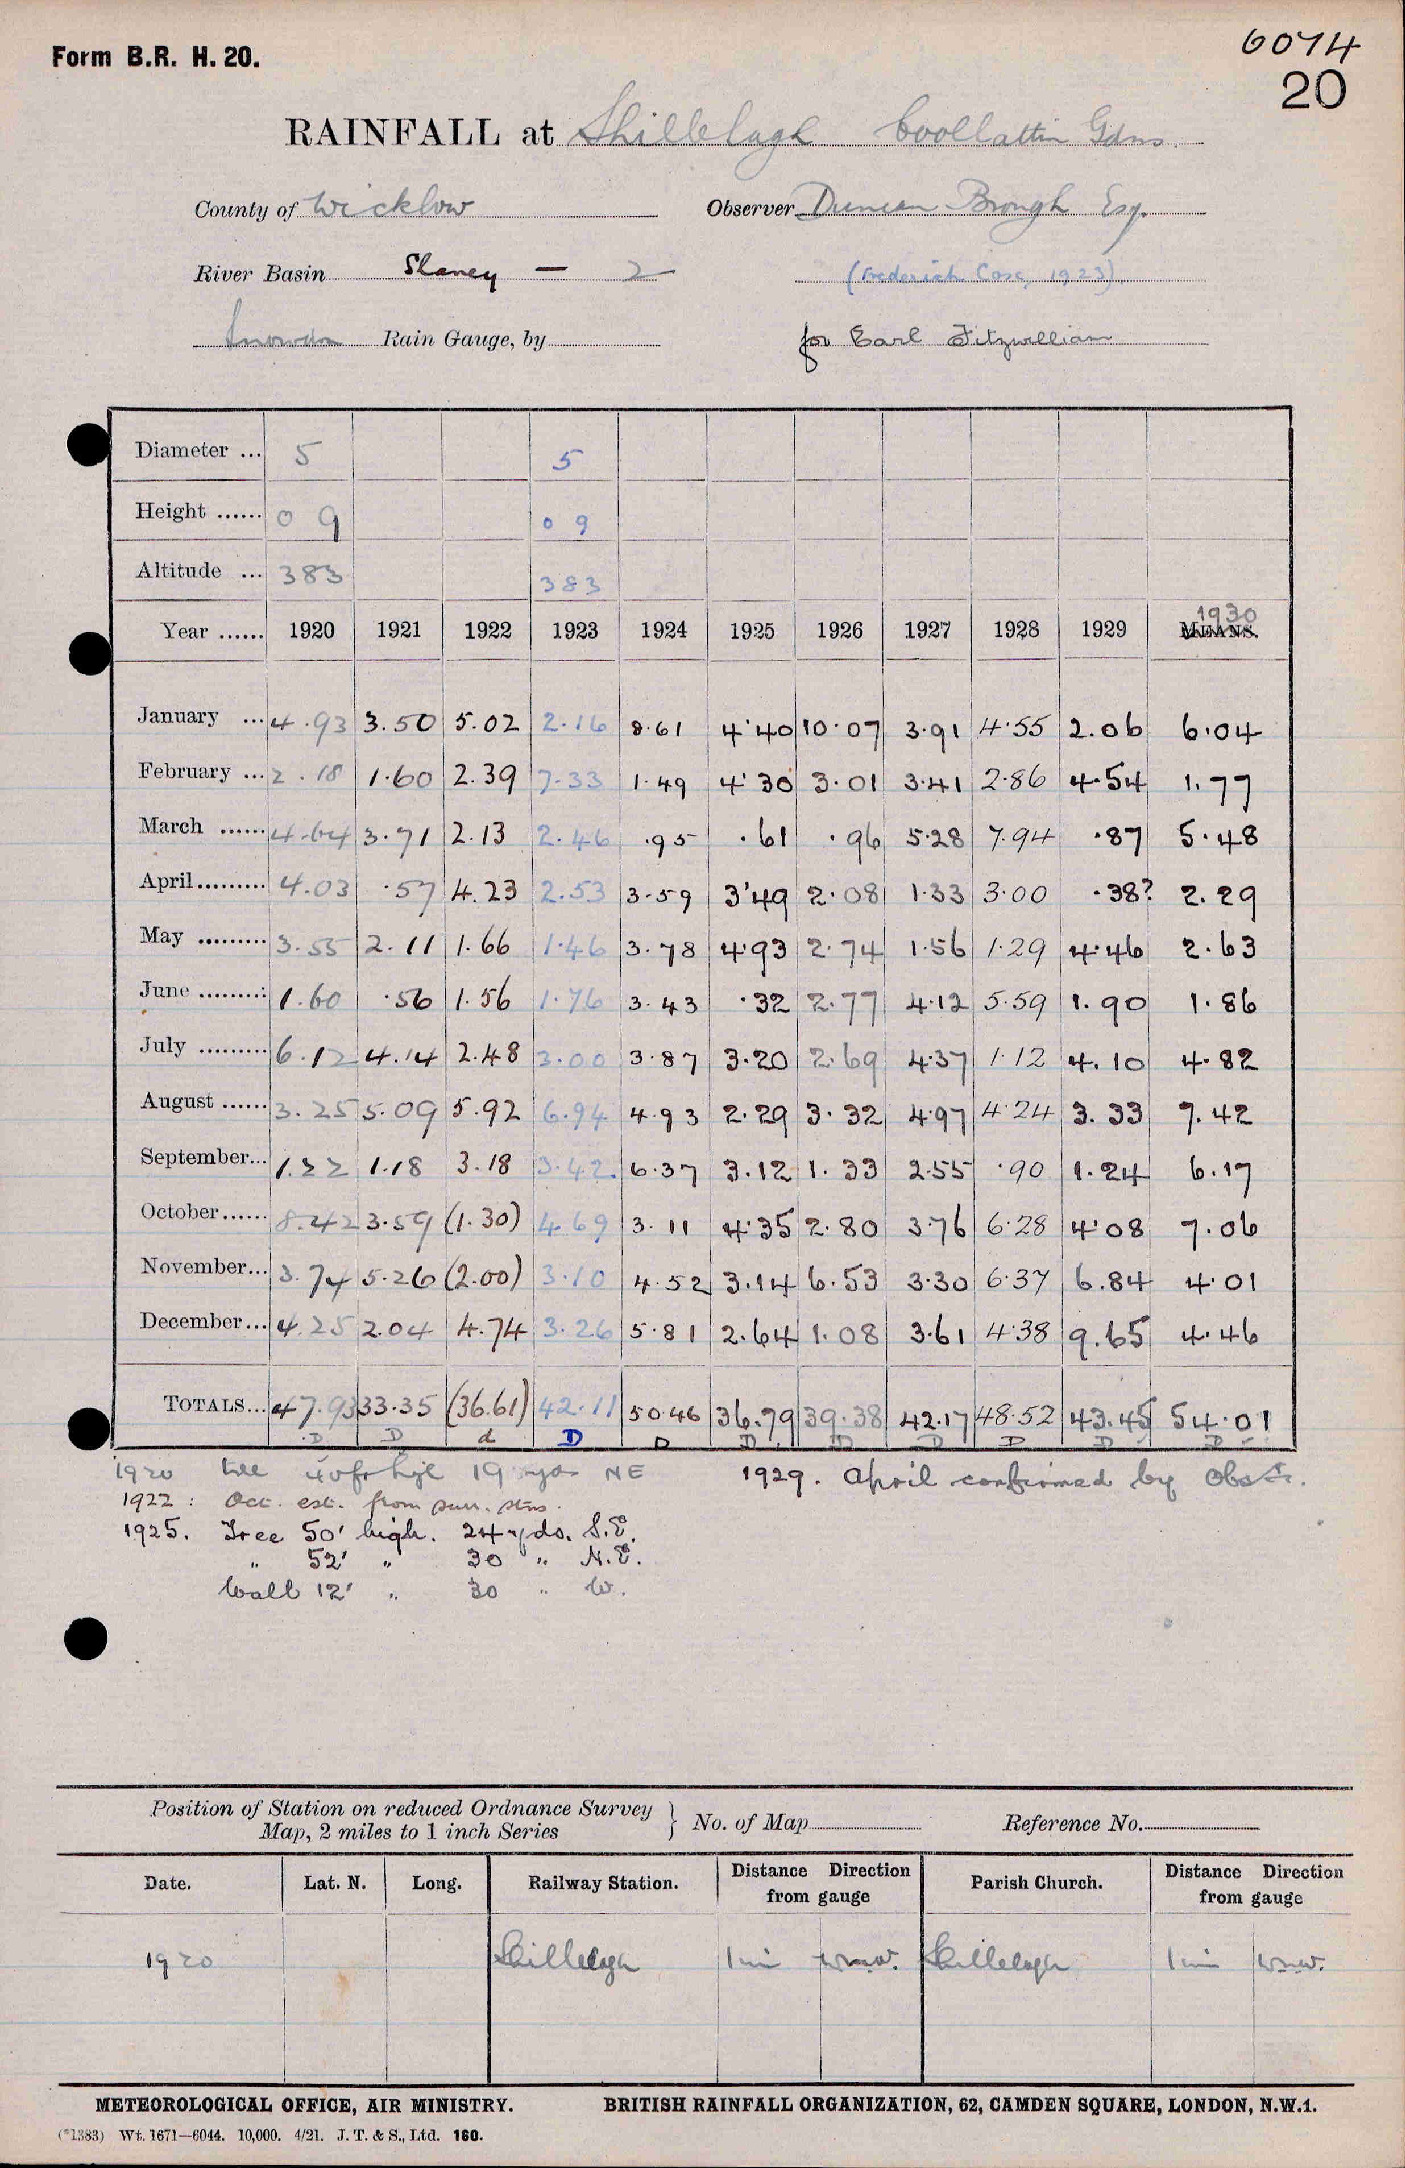 Form B.R. H. 20.
6074
20
RAINFALL at Shillelagh Coollattin Gdns.
County of Wicklow Observer Duncan Brough Esq.
River Basin Slaney — 2 (Frederick Case, 1923)
Snowdon Rain Gauge, by for Earl Fitzwilliam
Diameter ... 5 5
Height ...... 0 9 0 9
Altitude ... 383 383
1930
Year ...... 1920 1921 1922 1923 1924 1925 1926 1927 1928 1929 MEANS.
January ... 4.93 3.50 5.02 2.16 8.61 4.40 10.07 3.91 4.55 2.06 6.04
February ... 2.18 1.60 2.39 7.33 1.49 4.30 3.01 3.41 2.86 4.54 1.77
March ...... 4.64 3.71 2.13 2.46 .95 .61 .96 5.28 7.94 .87 5.48
April......... 4.03 .57 4.23 2.53 3.59 3.49 2.08 1.33 3.00 .38? 2.29
May ......... 3.55 2.11 1.66 1.46 3.78 4.93 2.74 1.56 1.29 4.46 2.63
June ......... 1.60 .56 1.56 1.76 3.43 .32 2.77 4.12 5.59 1.90 1.86
July ......... 6.12 4.14 2.48 3.00 3.87 3.20 2.69 4.37 1.12 4.10 4.82
August ...... 3.25 5.09 5.92 6.94 4.93 2.29 3.32 4.97 4.24 3.33 7.42
September... 1.22 1.18 3.18 3.42. 6.37 3.12 1.33 2.55 .90 1.24 6.17
October...... 8.42 3.59 (1.30) 4.69 3.11 4.35 2.80 3.76 6.28 4.08 7.06
November... 3.74 5.26 (2.00) 3.10 4.52 3.14 6.53 3.30 6.37 6.84 4.01
December... 4.25 2.04 4.74 3.26 5.81 2.64 1.08 3.61 4.38 9.65 4.46
TOTALS... 47.93 33.35 (36.61) 42.11 50.46 36.79 39.38 42.17 48.52 43.45 54.01
D D d D D D D D D D D
1920 tree 40 ft hge 19 yds NE 1929. April confirmed by Obsr.
1922 : Oct. est. from surr. stns.
1925. Tree 50' high. 24 yds. S.E.
" 52' " 30 " N.E.
Wall 12' " 30 " W.
Position of Station on reduced Ordnance Survey
Map, 2 miles to 1 inch Series } No. of Map Reference No.
Date. Lat. N. Long. Railway Station. Distance Direction from gauge Parish Church. Distance Direction from gauge
1920 Shillelagh 1 mi WNW. Shillelagh 1 mi WNW.
METEOROLOGICAL OFFICE, AIR MINISTRY. BRITISH RAINFALL ORGANIZATION, 62, CAMDEN SQUARE, LONDON, N.W.1.
(*1383) Wt. 1671—6044. 10,000. 4/21. J. T. & S., Ltd. 160.